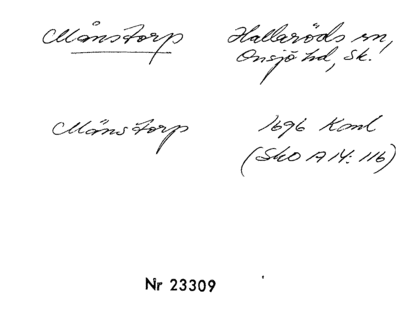 Månstorp Hallaröds sn,
Onsjö hd, Sk.
Månstorp 1696 Koml
(SkO A 14: 116)
Nr 23309